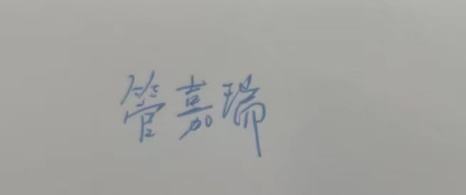 管嘉瑞